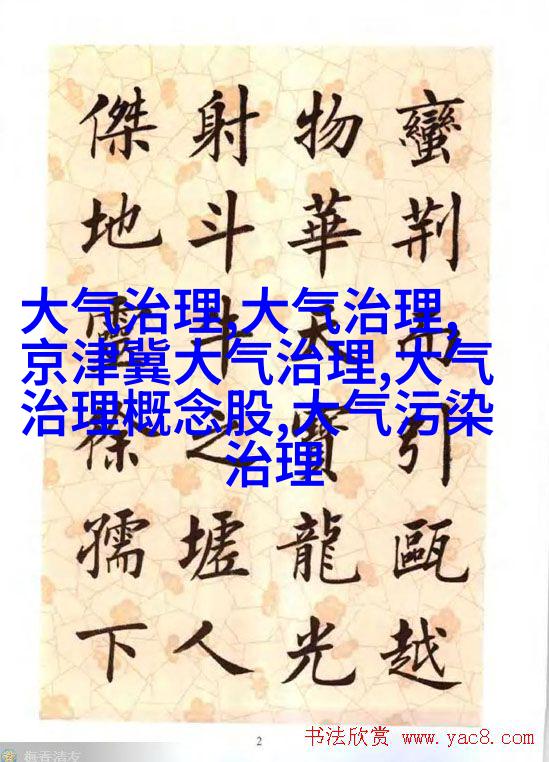 蠻荆而引甌越
物華天寳龍光
射斗牛之墟人
傑地靈徐孺下
大气治理,大气治理,
京津冀大气治理,大气
治理概念股,大气污染
治理
2
书法欣赏 www.yac8.com